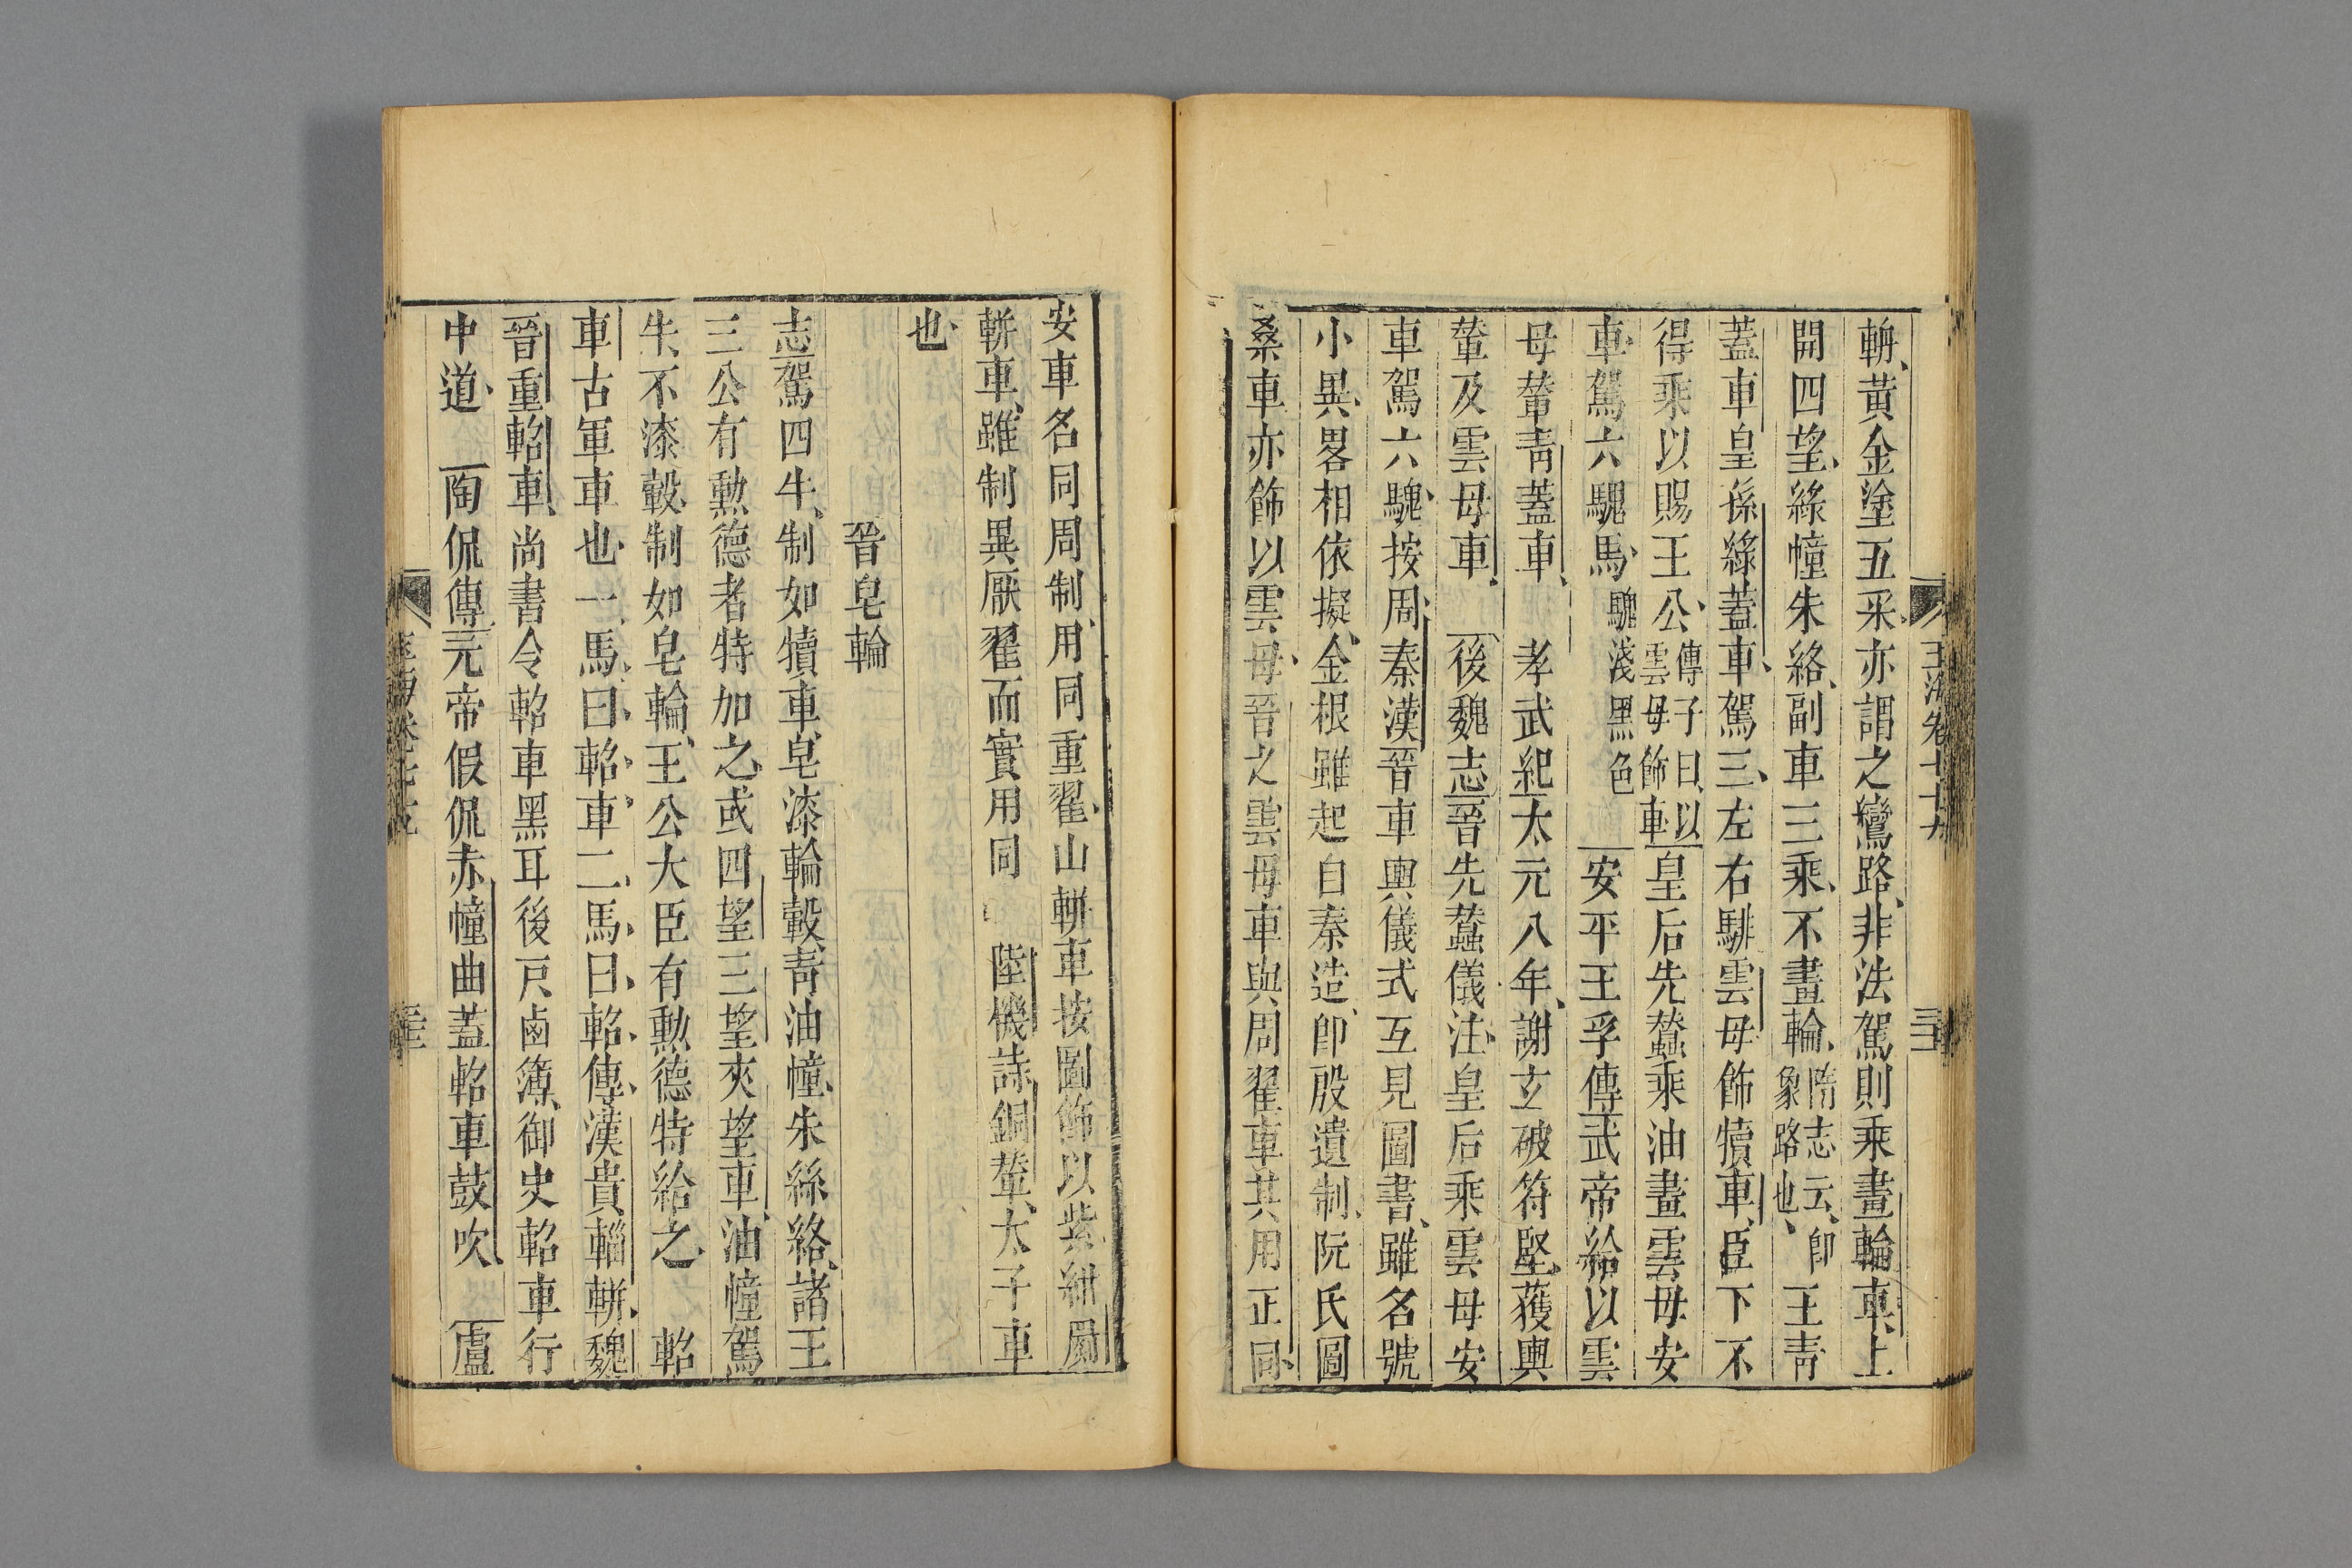 玉海卷七十九
三
輧黃金塗五采亦謂之鸞路非法駕則乘畫輪車上
開四望綠幢朱絡副車三乘不畫輪隋志云卽象路也王靑
蓋車皇孫綠蓋車駕三左右騑雲母飾犢車臣下不
得乘以賜王公傳子曰以雲母飾車皇后先蠶乘油畫雲母安
車駕六騩馬騩淺黑色安平王孚傳武帝給以雲
母輦靑蓋車 孝武紀太元八年謝玄破符堅獲輿
輦及雲母車 後魏志晉先蠶儀注皇后乘雲母安
車駕六騩按周秦漢晉車輿儀式互見圖書雖名號
小異畧相依擬金根雖起自秦造卽殷遺制阮氏圖
桑車亦飾以雲母晉之雲母車與周翟車其用正同
安車名同周制用同重翟山軿車按圖飾以紫紺罽
軿車雖制異厭翟而實用同 陸機詩銅輦太子車
也
晉皂輪
志駕四牛制如犢車皂漆輪轂靑油幢朱絲絡諸王
三公有勳德者特加之或四望三望夾望車油幢駕
牛不漆轂制如皂輪王公大臣有勳德特給之 軺
車古軍車也一馬曰軺車二馬曰軺傳漢貴輜軿魏
晉重軺車尚書令軺車黑耳後戸鹵簿御史軺車行
中道 陶侃傳元帝假侃赤幢曲蓋軺車鼓吹 盧